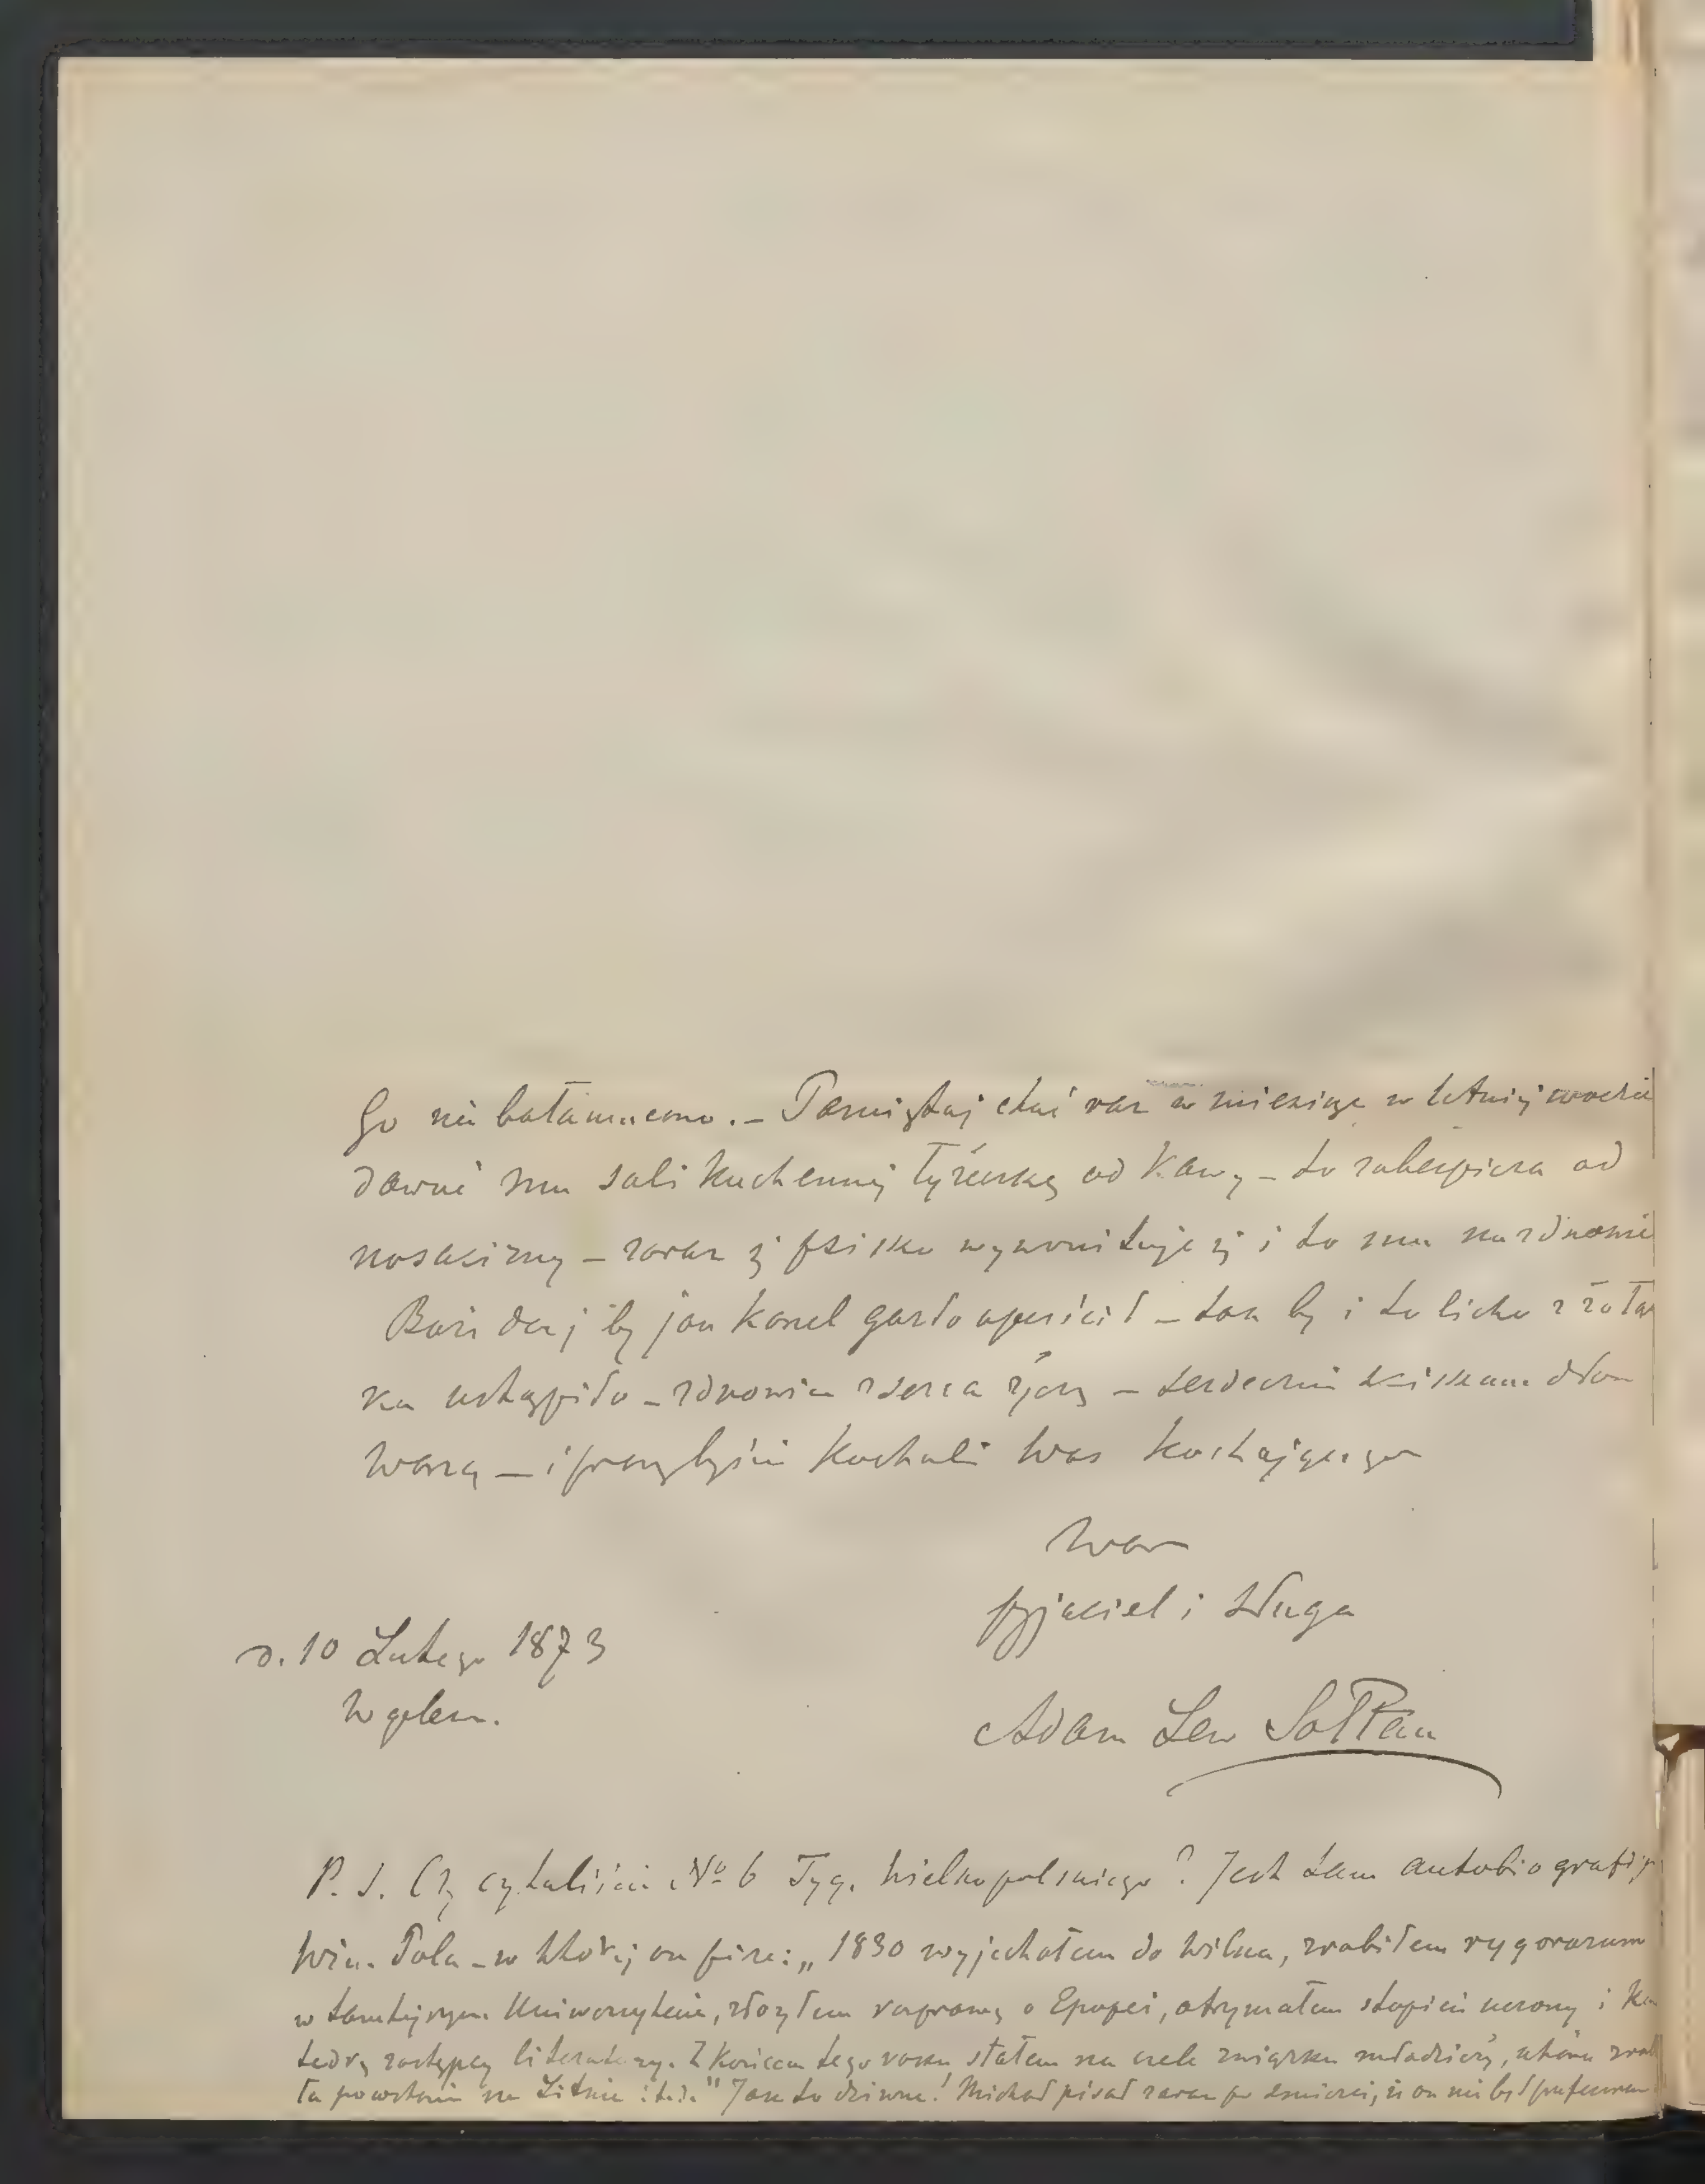 go nie bałamucono. – Pamiętaj choć raz w miesiącu w letniéj wodzie
dawać mu soli kuchennéj łyżeczkę od kawy – to zabezpiecza od
nosacizny – zaraz
Boże daj by jak kaszel gardło opuścił – tak by i to licho z żołąd
ka ustąpiło – zdrowia z serca życzę – serdecznie ściskam dłoń
Waszą – i proszę byście kochali Was kochającego
Was
przyjaciel i sługa
d. 10 Lutego 1873
Adam Lew Sołtan
P. S. Czy czytaliście No 6 Tyg. Wielkopolskiego? Jest tam autobiografija
Win. Pola – w któréj on pisze: „1830 wyjechałem do Wilna, zrobiłem rygorozum
w tamtejszym Uniwersytecie, złożyłem rozprawę o Epopei, otrzymałem stopień uczony i ka
tedrę zastępcy literatury. Z końcem tego roku stałem na czele związku młodzieży, która zrobi
ła powstanie na Litwie i t. d." Jak to dziwne! Michał pisał zaraz po śmierci, że on nie był profesorem